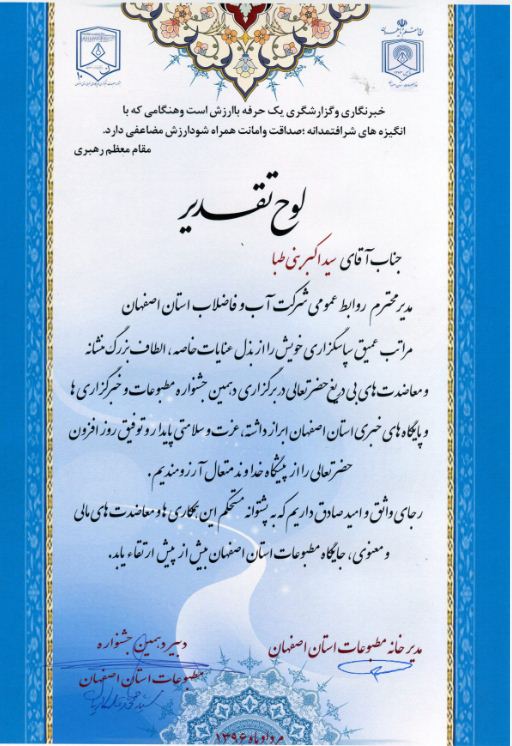 خبرنگاری وگزارشگری یک حرفه باارزش است وهنگامی که با
انگیزه های شرافتمدانه ؛صداقت وامانت همراه شودارزش مضاعفی دارد.
مقام معظم رهبری
لوح تقدیر
جناب آقای سید اکبر بنی طبا
مدیر محترم روابط عمومی شرکت آب و فاضلاب استان اصفهان
مراتب عمیق سپاسگزاری خویش را از بذل عنایات خاصه، الطاف بزرگ منشانه
و معاضدت های بی دریغ حضرتعالی در برگزاری دهمین جشنواره مطبوعات و خبرگزاری ها
و پایگاه های خبری استان اصفهان ابراز داشته، عزت و سلامتی پایدار و توفیق روز افزون
حضرتعالی را از پیشگاه خداوند متعال آرزومندیم.
رجای واثق و امید صادق داریم که به پشتوانه مستحکم این همکاری ها و معاضدت های مالی
و معنوی، جایگاه مطبوعات استان اصفهان بیش از پیش ارتقاء یابد.
مدیر خانه مطبوعات استان اصفهان
دبیر دهمین جشنواره
مطبوعات استان اصفهان
مرداد ماه ۱۳۹۶